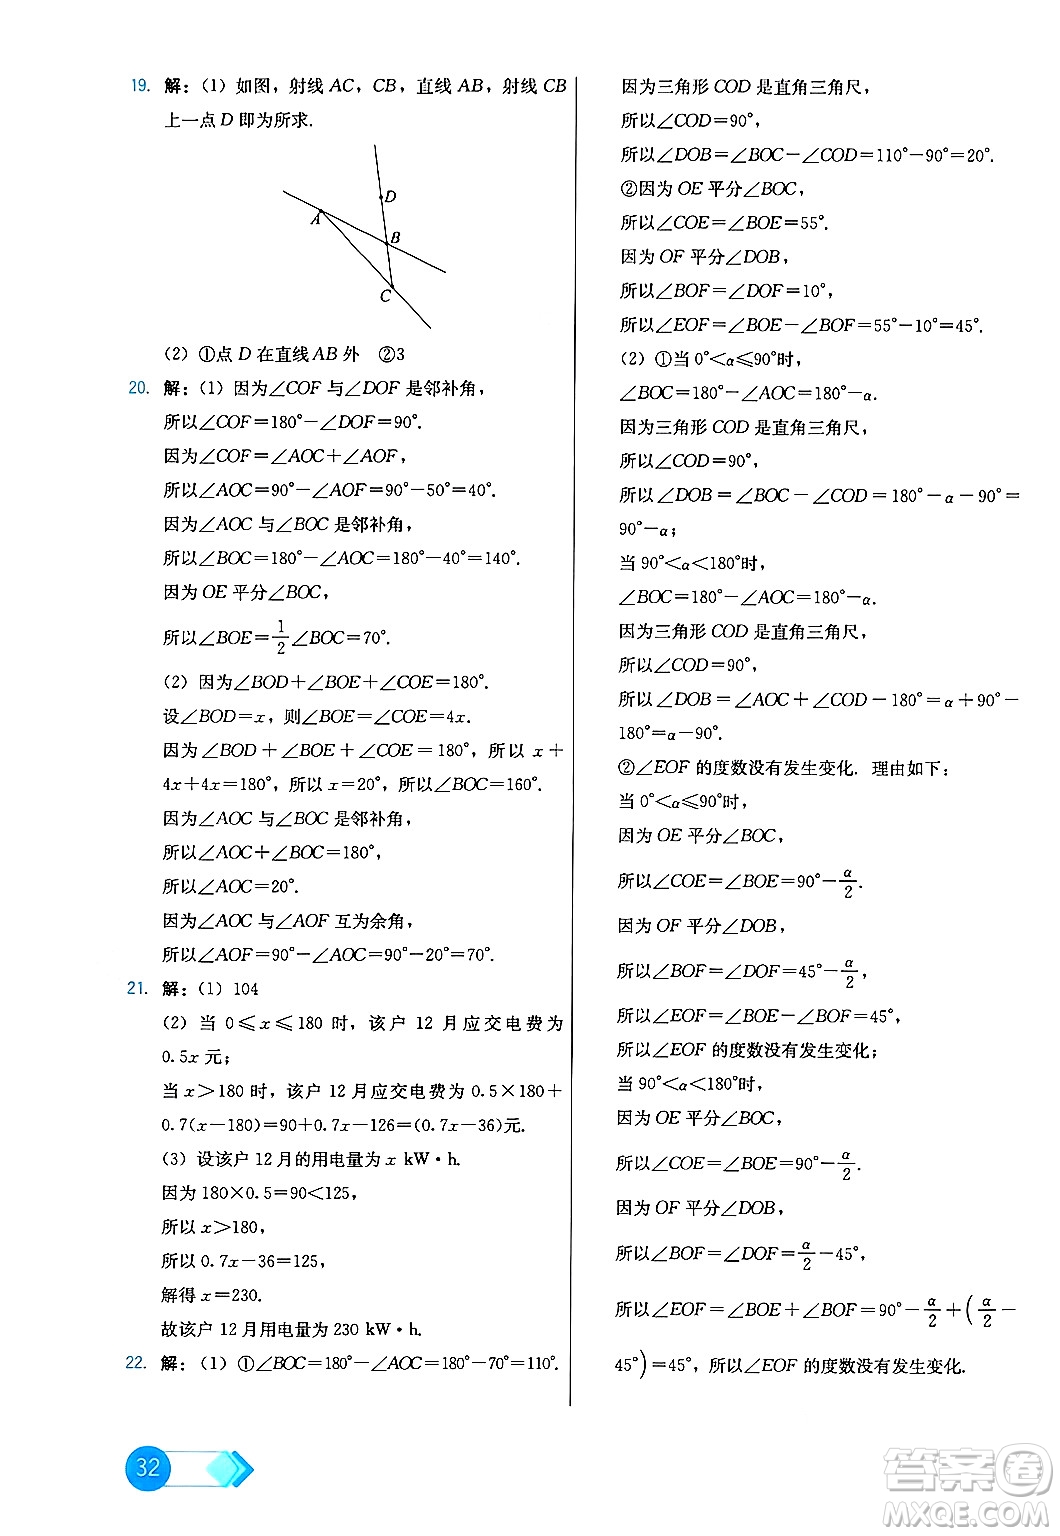 19. 解：(1) 如图，射线 AC，CB，直线 AB，射线 CB
上一点 D 即为所求.
D
A
B
C
(2) ①点 D 在直线 AB 外 ②3
20. 解：(1) 因为∠COF 与∠DOF 是邻补角，
所以∠COF=180°−∠DOF=90°.
因为∠COF=∠AOC+∠AOF，
所以∠AOC=90°−∠AOF=90°−50°=40°.
因为∠AOC 与∠BOC 是邻补角，
所以∠BOC=180°−∠AOC=180°−40°=140°.
因为 OE 平分∠BOC，
所以∠BOE=1/2∠BOC=70°.
(2) 因为∠BOD+∠BOE+∠COE=180°.
设∠BOD=x，则∠BOE=∠COE=4x.
因为∠BOD+∠BOE+∠COE=180°，所以 x+
4x+4x=180°，所以 x=20°，所以∠BOC=160°.
因为∠AOC 与∠BOC 是邻补角，
所以∠AOC+∠BOC=180°，
所以∠AOC=20°.
因为∠AOC 与∠AOF 互为余角，
所以∠AOF=90°−∠AOC=90°−20°=70°.
21. 解：(1) 104
(2) 当 0≤x≤180 时，该户 12 月应交电费为
0.5x 元；
当 x>180 时，该户 12 月应交电费为 0.5×180+
0.7(x−180)=90+0.7x−126=(0.7x−36)元.
(3) 设该户 12 月的用电量为 x kW·h.
因为 180×0.5=90<125，
所以 x>180，
所以 0.7x−36=125，
解得 x=230.
故该户 12 月用电量为 230 kW·h.
22. 解：(1) ①∠BOC=180°−∠AOC=180°−70°=110°.
因为三角形 COD 是直角三角尺，
所以∠COD=90°，
所以∠DOB=∠BOC−∠COD=110°−90°=20°.
②因为 OE 平分∠BOC，
所以∠COE=∠BOE=55°.
因为 OF 平分∠DOB，
所以∠BOF=∠DOF=10°，
所以∠EOF=∠BOE−∠BOF=55°−10°=45°.
(2) ①当 0°<α≤90°时，
∠BOC=180°−∠AOC=180°−α.
因为三角形 COD 是直角三角尺，
所以∠COD=90°，
所以∠DOB=∠BOC−∠COD=180°−α−90°=
90°−α；
当 90°<α<180°时，
∠BOC=180°−∠AOC=180°−α.
因为三角形 COD 是直角三角尺，
所以∠COD=90°，
所以∠DOB=∠AOC+∠COD−180°=α+90°−
180°=α−90°.
②∠EOF 的度数没有发生变化. 理由如下：
当 0°<α≤90°时，
因为 OE 平分∠BOC，
所以∠COE=∠BOE=90°−α/2.
因为 OF 平分∠DOB，
所以∠BOF=∠DOF=45°−α/2，
所以∠EOF=∠BOE−∠BOF=45°，
所以∠EOF 的度数没有发生变化；
当 90°<α<180°时，
因为 OE 平分∠BOC，
所以∠COE=∠BOE=90°−α/2.
因为 OF 平分∠DOB，
所以∠BOF=∠DOF=α/2−45°，
所以∠EOF=∠BOE+∠BOF=90°−α/2+(α/2−
45°)=45°，所以∠EOF 的度数没有发生变化.
32
答案圈
MXQE.COM